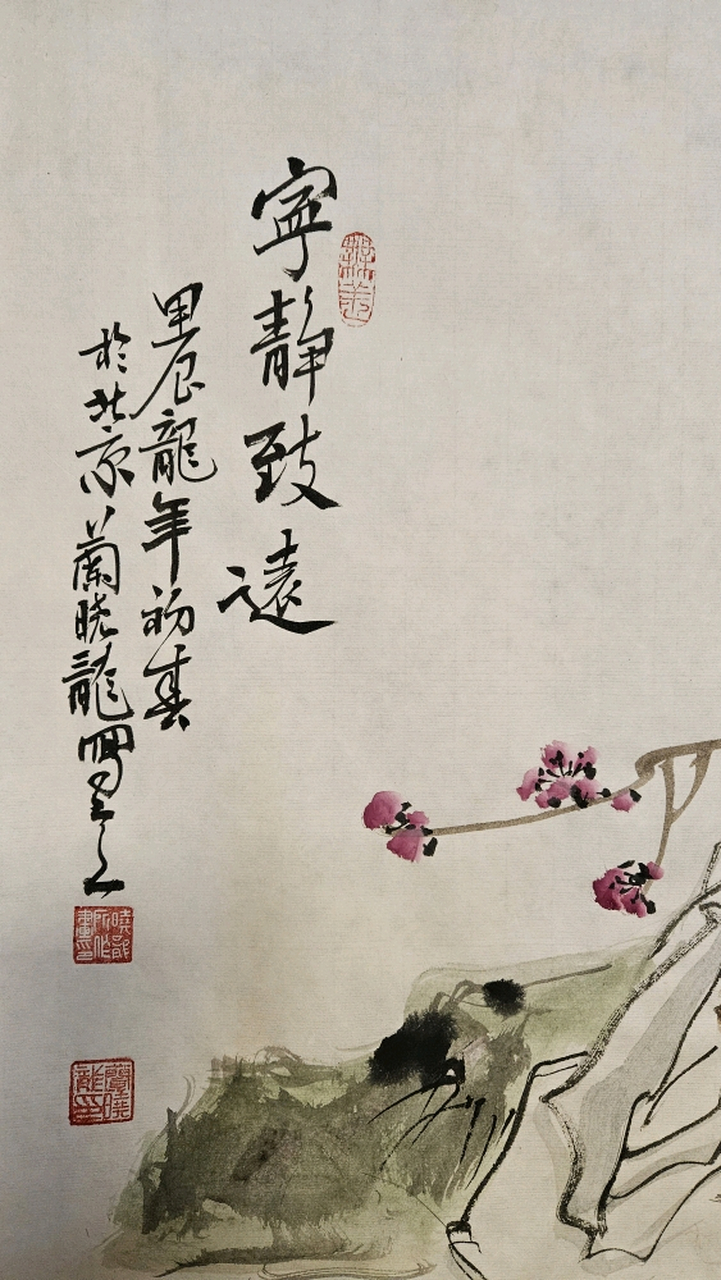 寧靜致遠
甲辰龍年初春
於北京蘭晓龍寫之
蘭曉龍印